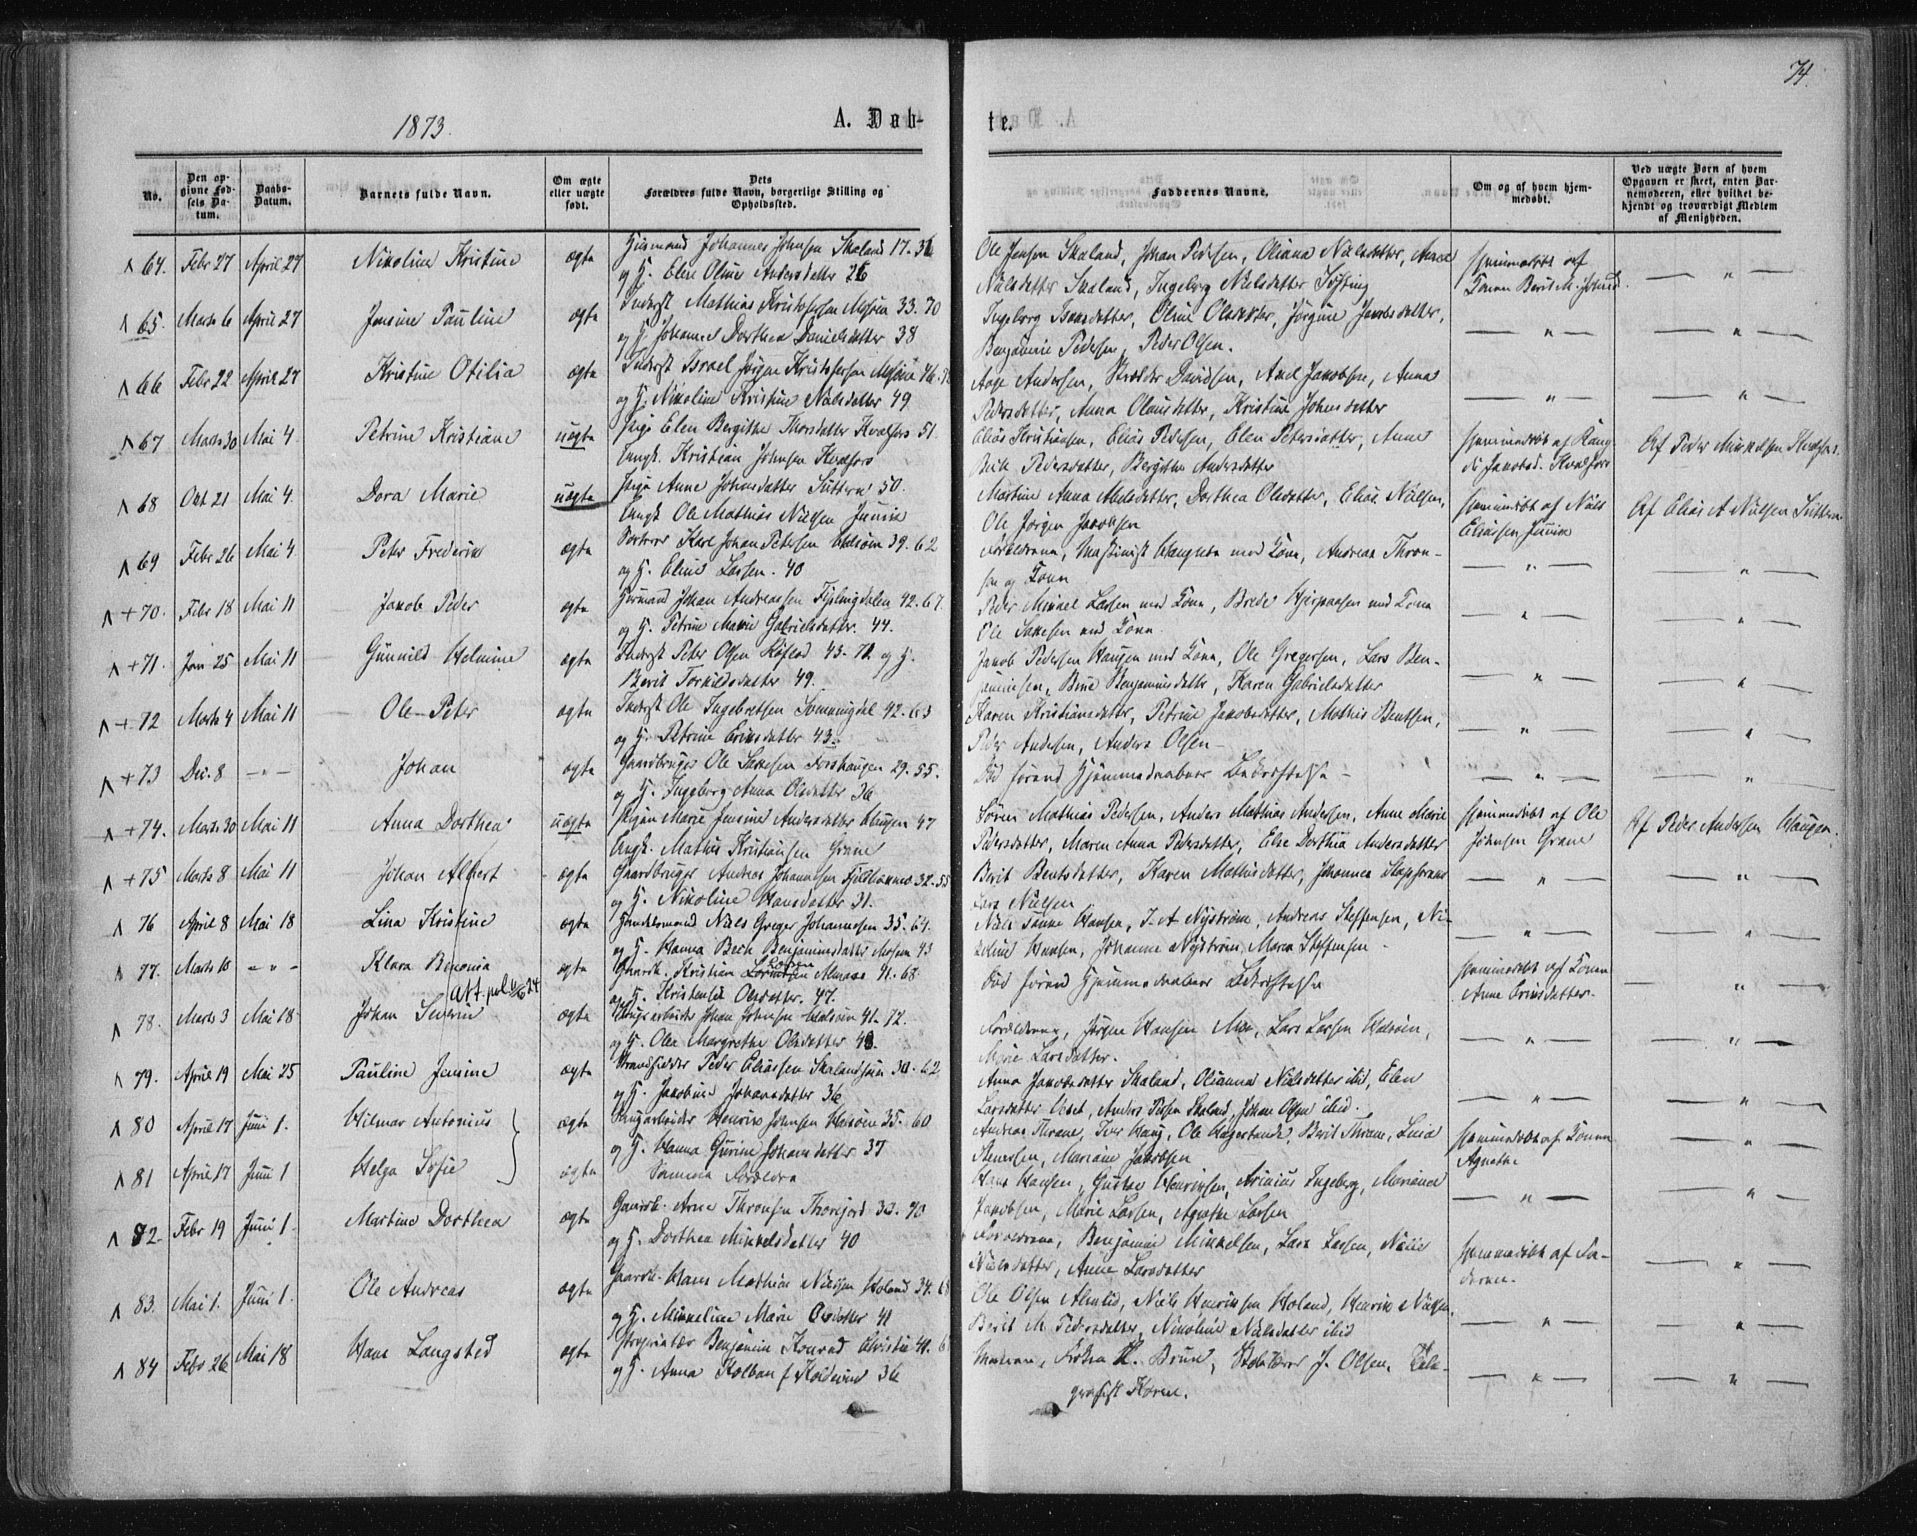 74.
1873.
A. Døb-
te.
No.
Den op-
givne Fød-
sels Da-
tum.
Daabs-
Datum.
Barnets fulde Navn.
Om ægte
eller uægte
født.
Dets
Forældres fulde Navn, borgerlige Stilling og
Opholdssted.
Faddernes Navne.
Om og af hvem hjem-
medøbt.
Ved uægte Børn af hvem
Opgaven er skeet, enten Bar-
nemoderen, eller hvilket be-
kjendt og troværdigt Medlem
af Menigheden.
64. Febr 27 April 27 Nikoline Kristine ægte Husmand Johannes Johnsen Skaland 17-36
og H. Elen Oline Andersdatter 26
Ole Jensen Skaland, Johan Pedersen, Oliana Nielsdatter, Maret
Nielsdatter Skaland, Ingeborg Nielsdatter
Hjemmedøbt af
Konen Berit M.
65. Marts 6 April 27 Jensine Pauline ægte Inderst Mathias Kristofersen Mosjøen 33.70
og H. Johanna Dorthea Danielsdatter 38
Ingeborg Isaksdatter, Oline Olsdatter, Jørgine Jakobsdatter,
Benjamin Pedersen, Peder Olsen.
66 Febr 22 April 27 Kristine Otilia ægte Inderst Israel Jørgen Kristofersen Mosjøen 46.
og H. Nikoline Kristine Nielsdatter 49
Aage Andersen, Davidsen, Axel Jakobsen, Anna
Pedersdatter, Anna Olausdatter, Kristine Johnsdatter
67 Marts 30 Mai 4. Petrine Kristiane uægte Pige Elen Bergithe Thorsdatter Kvalfors 51.
Ungk. Kristian Johnsen Kvalfors
Elias Kristiansen, Elias Pedersen, Elen Petersdatter, Anne
Pedersdatter, Bergitha Andersdatter
Hjemmedøbt af Rang-
di Jakobsd. Kvalfors
Af Peder Mikkelsen Kvalfors.
68 Okt 21 Mai 4. Dora Marie uægte Pige Anne Johnsdatter 50
Ungk Ole Mathias Nielsen
Martine Anna Nielsdatter, Dorthea Olsdatter, Elias Nielsen,
Ole Jørgen Jakobsen
Hjemmedøbt af Niels
Eliassen
Af Elias A Nielsen
69 Febr 26 Mai 4. Peter Frederik ægte Karl Johan Petersen Halsøen 39.62
og H. Eline Larsen. 40
Forældrene, Maskinist med Kone, Andreas Thron-
sen og Kone
+70. Febr 18 Mai 11 Jakob Peder ægte Husmand Johan Andreassen Fiplingdalen 42.67.
og H. Petrine Marie Gabrielsdatter. 44.
Peder Mikkel Larsen med Kone, Brede med Kone
Ole med Kone.
+71. Jan 25 Mai 11 Gunnild Helmine ægte Inderst Peder Olsen 43-71. og H.
Berit Torkildsdatter 49.
Jakob Pedersen Haugen med Kone, Ole Gregersen, Lars Ben-
jaminsen, Benjaminsdatter, Karen Gabrielsdatter
+72 Marts 4 Mai 11 Ole Peter ægte Inderst Ole Ingebretsen Svenningdal 42.63
og H. Petrine Eriksdatter 43.
Karen Kristiansdatter, Petrine Jakobsdatter, Mathis Bentsen,
Peder Andersen, Anders Olsen
+73 Dec. 8 -"- Johan ægte Gaardbruger Ole 29.55.
og H. Ingeborg Anna Olsdatter 36
Død førend Hjemmedaabens Bekræftelse
+74. Marts 30 Mai 11 Anna Dorthea uægte Pigen Marie Jensine Andersdatter Haugen 47
Ungk. Mathis Kristiansen Grane
Søren Mathias Pedersen, Anders Mathias Andersen, Anne Marie
Pedersdatter, Maren Anna Pedersdatter, Else Dorthea Andersdatter
Hjemmedøbt af Ole
Johnsen Grane
Af Peder Andersen Haugen.
+75 Marts 8 Mai 11 Johan Albert ægte Gaardbruger Andreas Johannesen 32.55
og H. Nikoline Hansdatter 31.
Berit Bentsdatter, Karen Mathisdatter, Johannes
Lars Nielsen
76 April 8 Mai 18 Lina Kristine ægte Handelsmand Niels Greger Johannesen 35.64.
og H. Hanna Bech Benjaminsdatter Mosjøen 43
Niels Hansen, J. A Nyström, Andreas Steffensen, Ni-
Hansen, Johanne Nyström, Maren Steffensen
77. Marts 10 -"- Klara Benonia ægte Gaardb. Kristian Larsen 41.68.
og H. Olsdatter. 47.
Død førend Hjemmedaabens Bekræftelse
Hjemmedøbt af Konen
Anne Eriksdatter.
Att. 24
78. Marts 3 Mai 18 Johan Severin ægte Johan Johnsen Halsøen 41-72.
og H. Olea Margrethe Olsdatter
Forældrene, Jørgen Hansen, Lars Larsen Halsøen,
Marie Larsdatter.
79. April 19 Mai 25 Pauline Jensine ægte Strandsidder Peder Eliassen 30.62
og H. Jakobine Johansdatter 36
Anna Jakobsdatter Skaland, Olianna Nielsdatter ibid, Elen
Larsdatter, Anders Skaland, Johan Olsen ibid.
80 April 17 Juni 1. Hilmar Antonius ægte Henrik Johnsen Halsøen 35.60
og H. Hanna Gurine Johansdatter 37
Andreas Thrane, Iver Haug, Ole, Berit Thrane, Lucia
Stensen, Mariane Jakobsen
Hjemmedøbt af Konen
Agnethe
81 April 17 Juni 1 Helga Sofie ægte Samme Forældre
Hans Hansen, Gustav Henriksen, Ingeberg, Mariane
Jakobsen, Marie Larsen, Agnethe Larsen
82 Febr 19 Juni 1. Martine Dorthea ægte Gaardb. Arne Thronsen 33.70
og H. Dorthea Mikkelsdatter 40
Forældrene, Benjamin Mikkelsen, Lars Larsen,
Nielsdatter, Anne Larsdatter
Hjemmedøbt af Fa-
deren.
83. Mai 1. Juni 1. Ole Andreas ægte Gaardb. Hans Mathias Nielsen Holand 34.
og H. Mikkeline Marie 41
Ole Olsen, Niels Henriksen Holand, Henrik Nielsen,
Berit M. Pedersdatter, Nikoline Nielsdatter ibid
84 Febr 26 Mai 18 Hans Langsted ægte Proprietær Benjamin Konrad Christie 41.
og H. Anna Kolban f. Koldevin 36
Brun, J. Olsen, Tele-
grafist Koren.